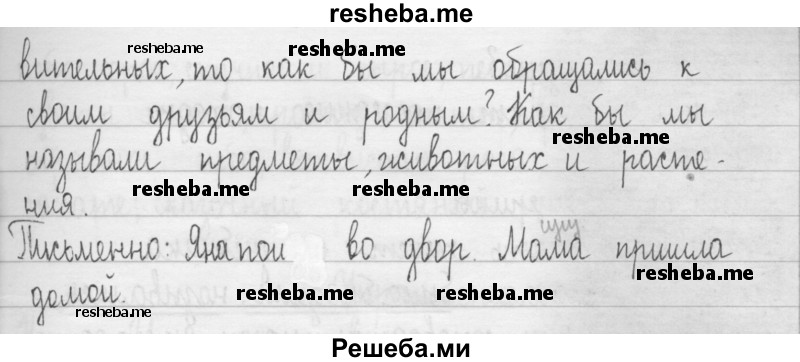 resheba.me
resheba.me resheba.me
вительных, то как бы мы обращались к
своим друзьям и родным? Как бы мы
resheba.me
называли предметы, животных и расте-
resheba.me resheba.me
ния.
Письменно: Яна во двор. Мама пришла
resheba.me
домой.
resheba.me resheba.me
resheba.me
Решеба.ми